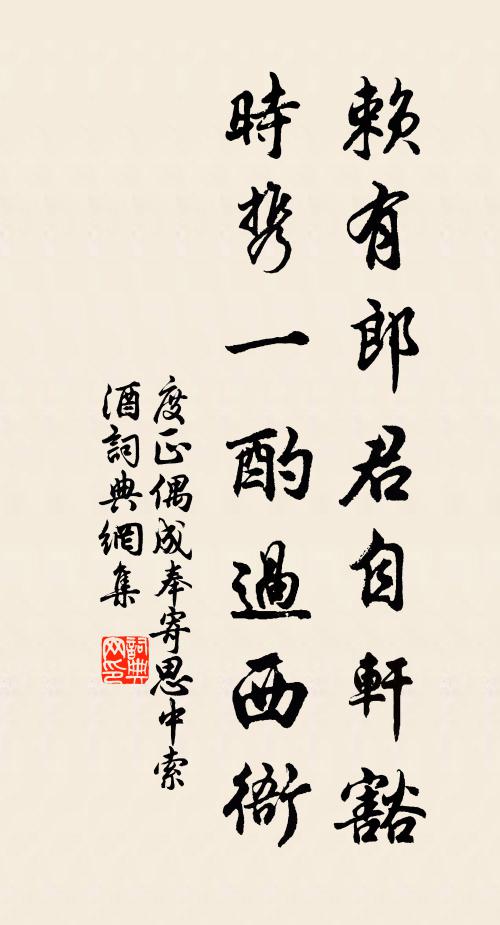 賴有郎君自軒豁
時携一酌過西衙
度正偶成奉寄思中索
酒詞典網集
詞典
网印